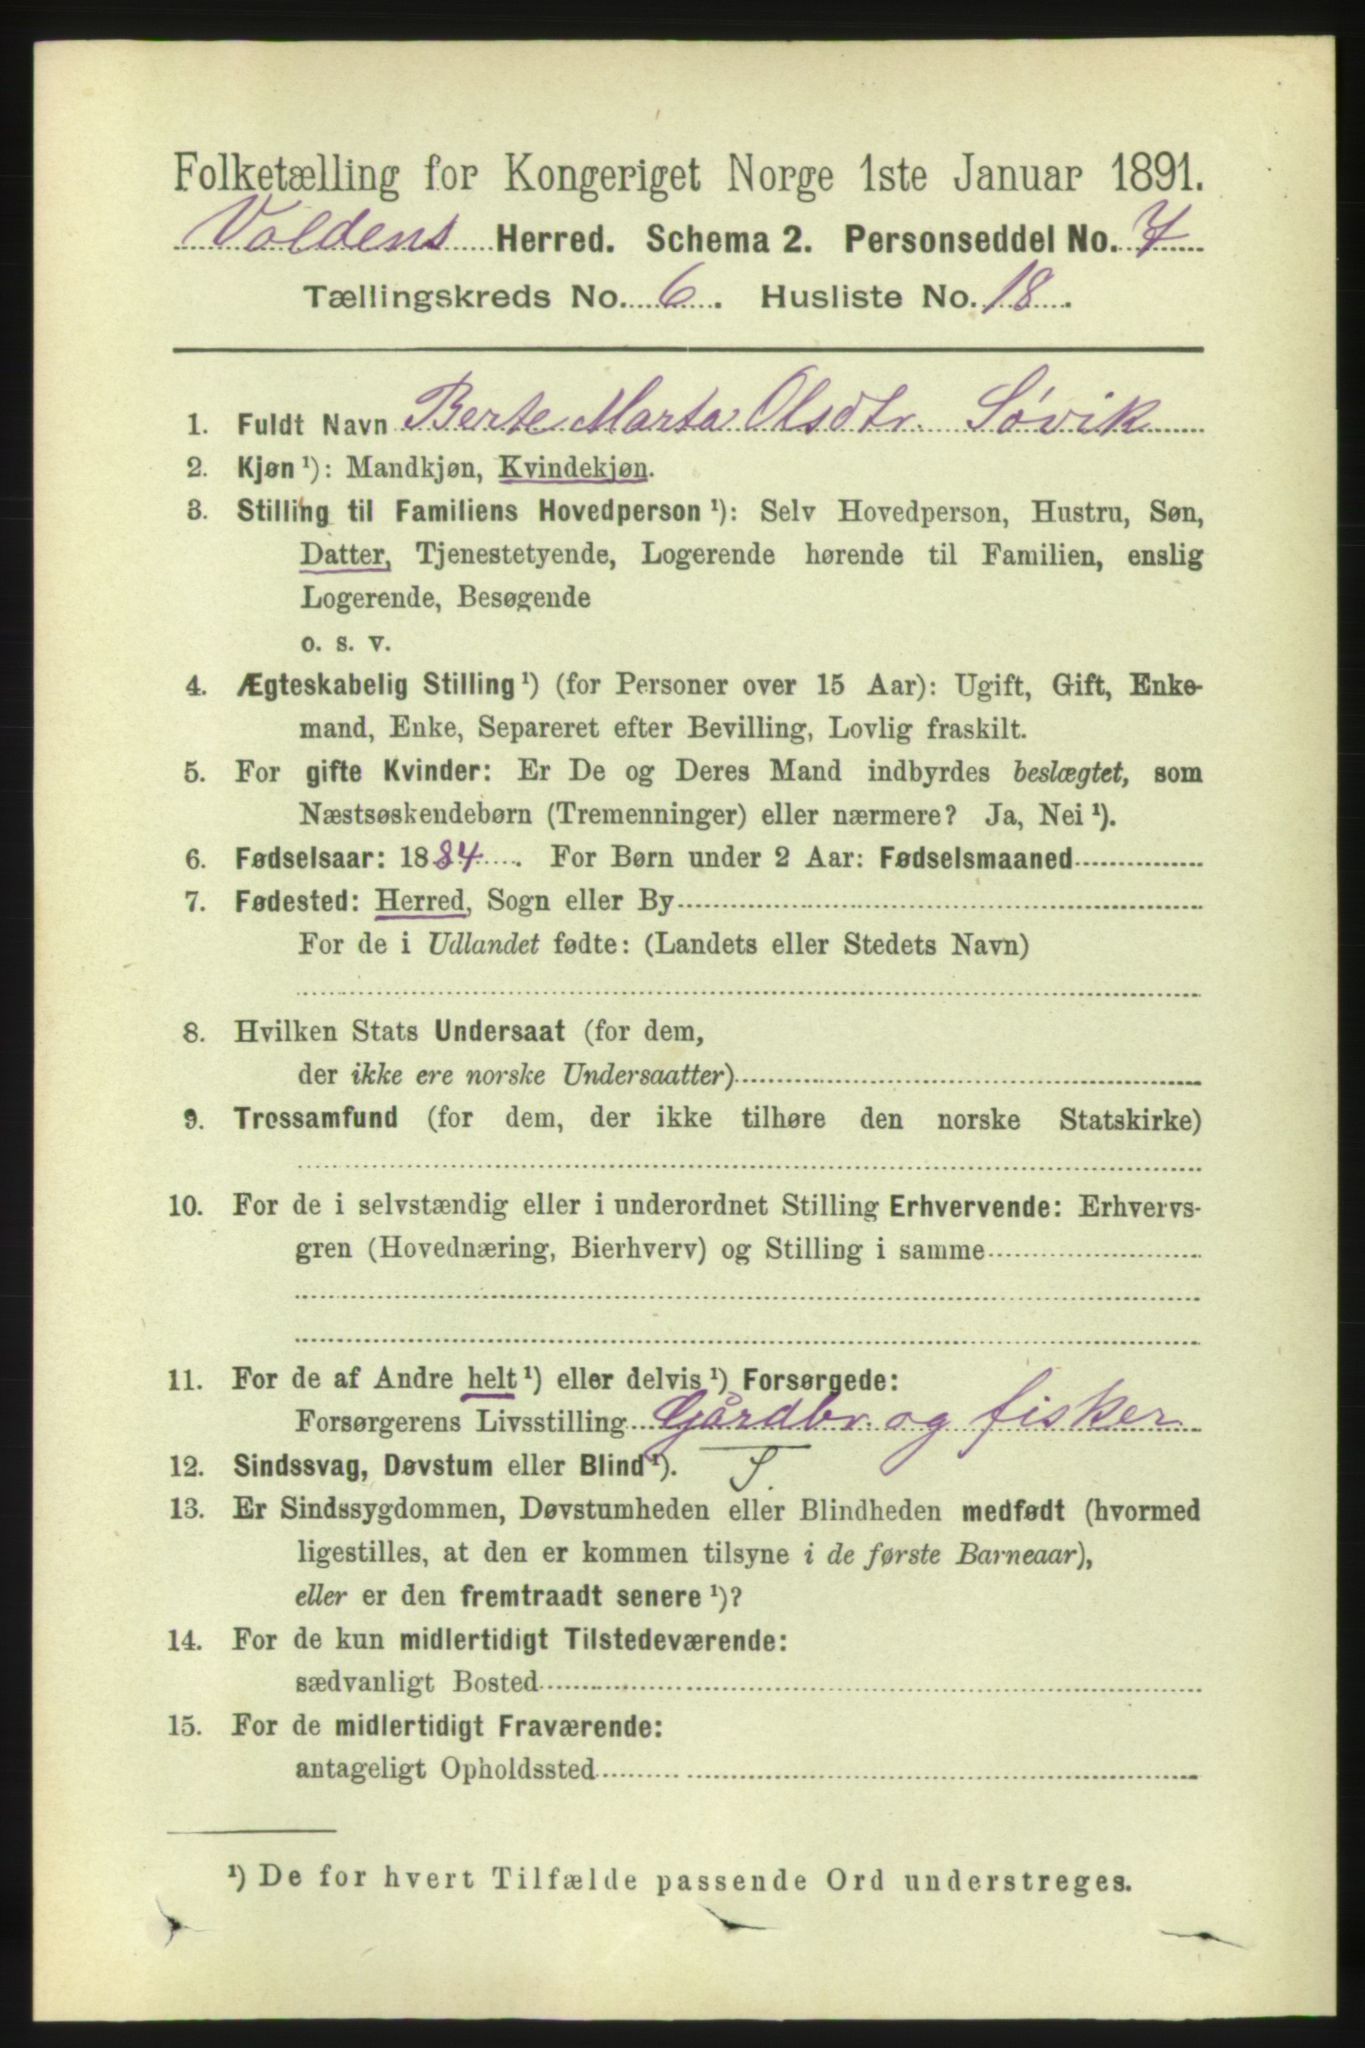 Folketælling for Kongeriget Norge 1ste Januar 1891.
Voldens Herred. Schema 2. Personseddel No. 7
Tællingskreds No. 6. Husliste No. 18.
1. Fuldt Navn Berte Marta Olsdtr. Søvik
2. Kjøn ¹): Mandkjøn, Kvindekjøn.
3. Stilling til Familiens Hovedperson ¹): Selv Hovedperson, Hustru, Søn,
Datter, Tjenestetyende, Logerende hørende til Familien, enslig
Logerende, Besøgende
o. s. v.
4. Ægteskabelig Stilling ¹) (for Personer over 15 Aar): Ugift, Gift, Enke-
mand, Enke, Separeret efter Bevilling, Lovlig fraskilt.
5. For gifte Kvinder: Er De og Deres Mand indbyrdes beslægtet, som
Næstsøskendebørn (Tremenninger) eller nærmere? Ja, Nei ¹).
6. Fødselsaar: 1884. For Børn under 2 Aar: Fødselsmaaned
7. Fødested: Herred, Sogn eller By
For de i Udlandet fødte: (Landets eller Stedets Navn)
8. Hvilken Stats Undersaat (for dem,
der ikke ere norske Undersaatter)
9. Trossamfund (for dem, der ikke tilhøre den norske Statskirke)
10. For de i selvstændig eller i underordnet Stilling Erhvervende: Erhvervs-
gren (Hovednæring, Bierhverv) og Stilling i samme
11. For de af Andre helt ¹) eller delvis ¹) Forsørgede:
Forsørgerens Livsstilling Gårdbr. og fisker
12. Sindssvag, Døvstum eller Blind ¹). S.
13. Er Sindssygdommen, Døvstumheden eller Blindheden medfødt (hvormed
ligestilles, at den er kommen tilsyne i de første Barneaar),
eller er den fremtraadt senere ¹)?
14. For de kun midlertidigt Tilstedeværende:
sædvanligt Bosted
15. For de midlertidigt Fraværende:
antageligt Opholdssted
¹) De for hvert Tilfælde passende Ord understreges.